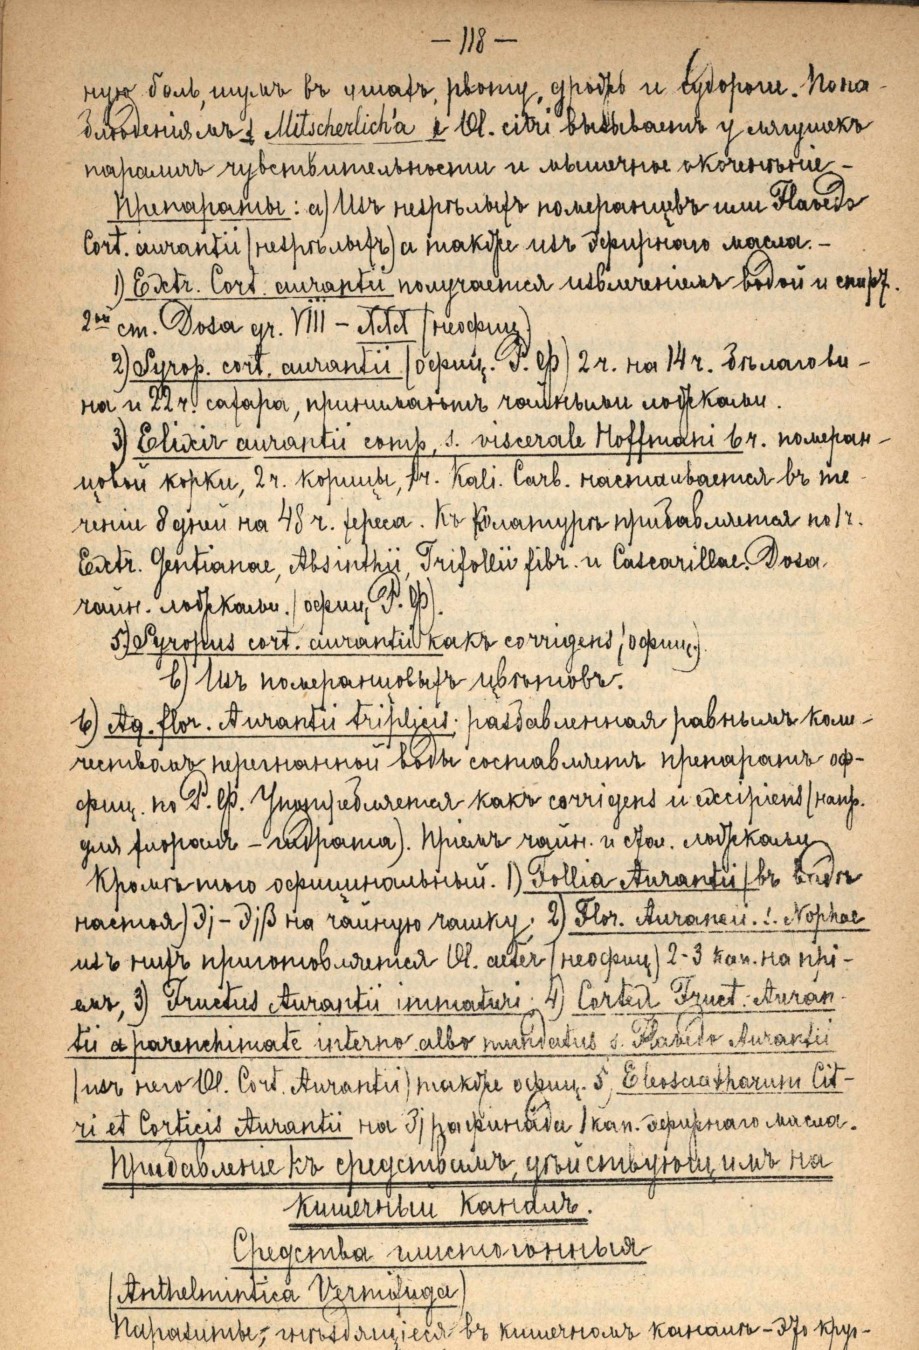 — 118 —
ную боль, шумъ въ ушахъ, рвоту, дрожь и судороги. По на-
блюденіямъ Mitscherlich'a Ol. citri вызываетъ у лягушекъ
параличъ чувствительности и мышечное окоченѣніе —
Препараты: a) Изъ незрѣлыхъ померанцевъ или Flavedo
Cort. aurantii (незрѣлыхъ) а также изъ эфирнаго масла. —
1) Extr. Cort. aurantii получается извлеченіемъ водой и спирт.
2ой ст. Dosa gr. VIII — XXX (неофиц.)
2) Syrop. cort. aurantii (офиц. Р. Ф) 2 ч. на 14 ч. бѣлаго ви-
на и 22 ч. сахара, принимаютъ чайными ложками.
3) Elixir aurantii comp. s. viscerale Hoffmani 6 ч. померан-
цовой корки, 2 ч. корицы, 1 ч. Kali. Carb. настаивается въ те-
ченіе 8 дней на 48 ч. хереса. Къ колатурѣ прибавляется по 1 ч.
Extr. Gentianae, Absinthii, Trifollii fibr. и Cascarillae. Dosa
чайн. ложками. (офиц. Р. Ф).
5) Syropus cort. aurantii какъ corrigens (офиц.)
b) Изъ померанцовыхъ цвѣтовъ.
6) Aq. flor. Aurantii triplicis; разбавленная равнымъ коли-
чествомъ перегнанной воды составляетъ препаратъ оф-
фиц. по Р. Ф. Употребляется какъ corrigens и excipiens (напр.
для хлоралъ — гидрата). Пріемъ чайн. и стол. ложками
Кромѣ того официнальный. 1) Follia Aurantii (въ видѣ
настоя) Ʒj — Ʒjβ на чайную чашку; 2) Flor. Aurancii. s. Naphae
изъ нихъ приготовляется Ol. aeter (неофиц) 2-3 кап. на прі-
емъ, 3) Fructus Aurantii immaturi; 4) Cortex Fruct: Auran-
tii a parenchimate interno albo mundatus s. Flavedo Aurantii
(изъ него Ol. Cort. Aurantii) также офиц. 5, Eleosacharum Cit-
ri et Corticis Aurantii на Ʒj рафинада 1 кап. эфирнаго масла.
Прибавленіе къ средствамъ, дѣйствующимъ на
кишечный каналъ.
Средства глистогонныя
(Anthelmintica Vermifuga)
Паразиты, гнѣздящіеся въ кишечномъ каналѣ — это круг-